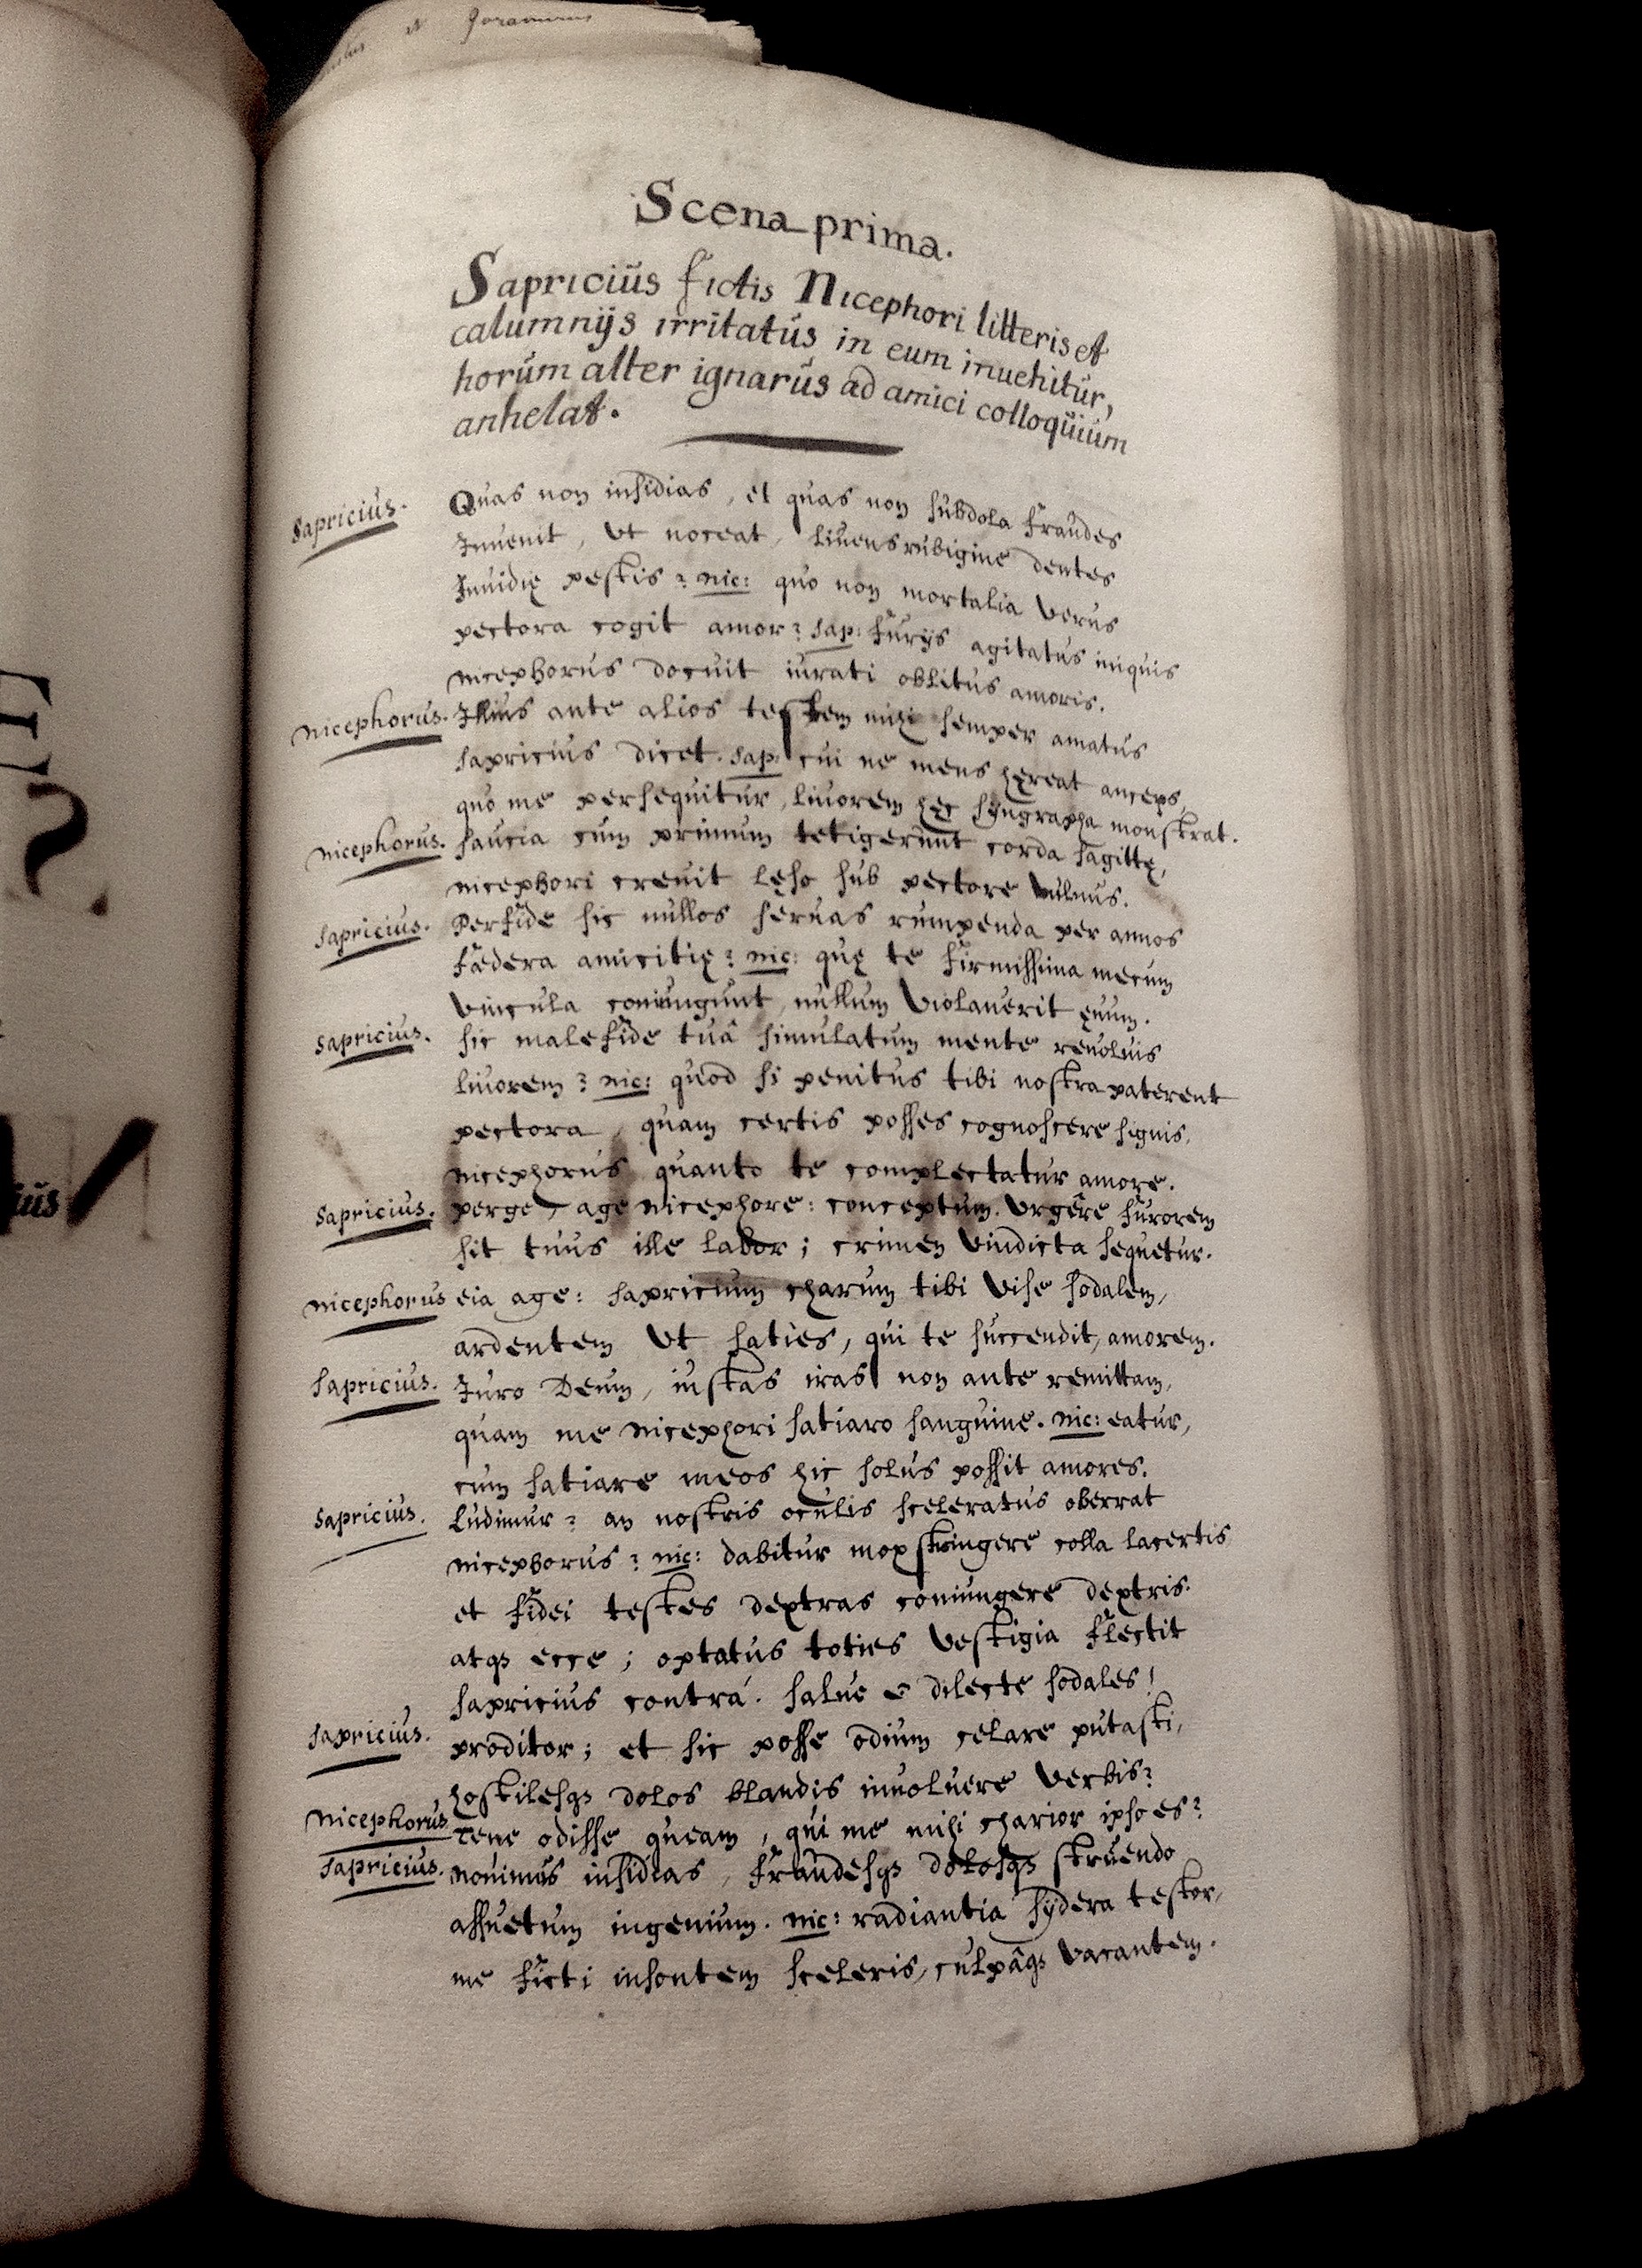 et Joramus
Scena prima.
Sapricius fictis Nicephori litteris et
calumnijs irritatus in eum inuehitur,
horum alter ignarus ad amici colloquium
anhelat.
Sapricius. Quas non insidias, et quas non subdola fraudes
Inuenit, vt noceat, liuens rubigine dentes
Inuidię pestis? nic: quo non mortalia verus
pectora cogit amor? sap: furijs agitatus iniquis
nicephorus docuit iurati oblitus amoris.
Nicephorus. Illius ante alios testem mihi semper amatus
sapricius dicet. sap: cui ne mens hęreat anceps,
quo me persequitur, liuorem hęc syngrapha monstrat.
Nicephorus. saucia cum primum tetigerunt corda sagittę,
nicephori creuit lęso sub pectore vulnus.
Sapricius. Perfide sic nullos seruas rumpenda per annos
fædera amicitię? nic: quę te firmissima mecum
vincula coniungunt, nullum violauerit ęuum.
Sapricius. sic malefide tuâ simulatum mente reuoluis
liuorem? nic: quod si penitus tibi nostra paterent
pectora, quam certis posses cognoscere signis,
nicephorus quanto te complectatur amore.
Sapricius. perge, age nicephore: conceptum vrgêre furorem
sit tuus ille labor; crimen vindicta sequetur.
Nicephorus eia age: sapricium charum tibi vise sodalem,
ardentem vt saties, qui te succendit, amorem.
Sapricius. Iuro Deum, iustas iras non ante remittam,
quam me nicephori satiaro sanguine. nic: eatur,
cum satiare meos hic solus possit amores.
Sapricius. Ludimur? an nostris oculis sceleratus oberrat
nicephorus? nic: dabitur mox stringere colla lacertis
et fidei testes dextras coniungere dextris.
atqз ecce; optatus toties vestigia flectit
sapricius contrá. salue ô dilecte sodales!
Sapricius. proditor; et sic posse odium celare putasti,
hostilesqз dolos blandis inuoluere verbis?
Nicephorus Tene odisse queam, qui me mihi charior ipso es?
Sapricius. nouimus insidias, fraudesqз dolosqз struendo
assuetum ingenium. nic: radiantia sydera testor,
me ficti insontem sceleris, culpâqз vacantem.